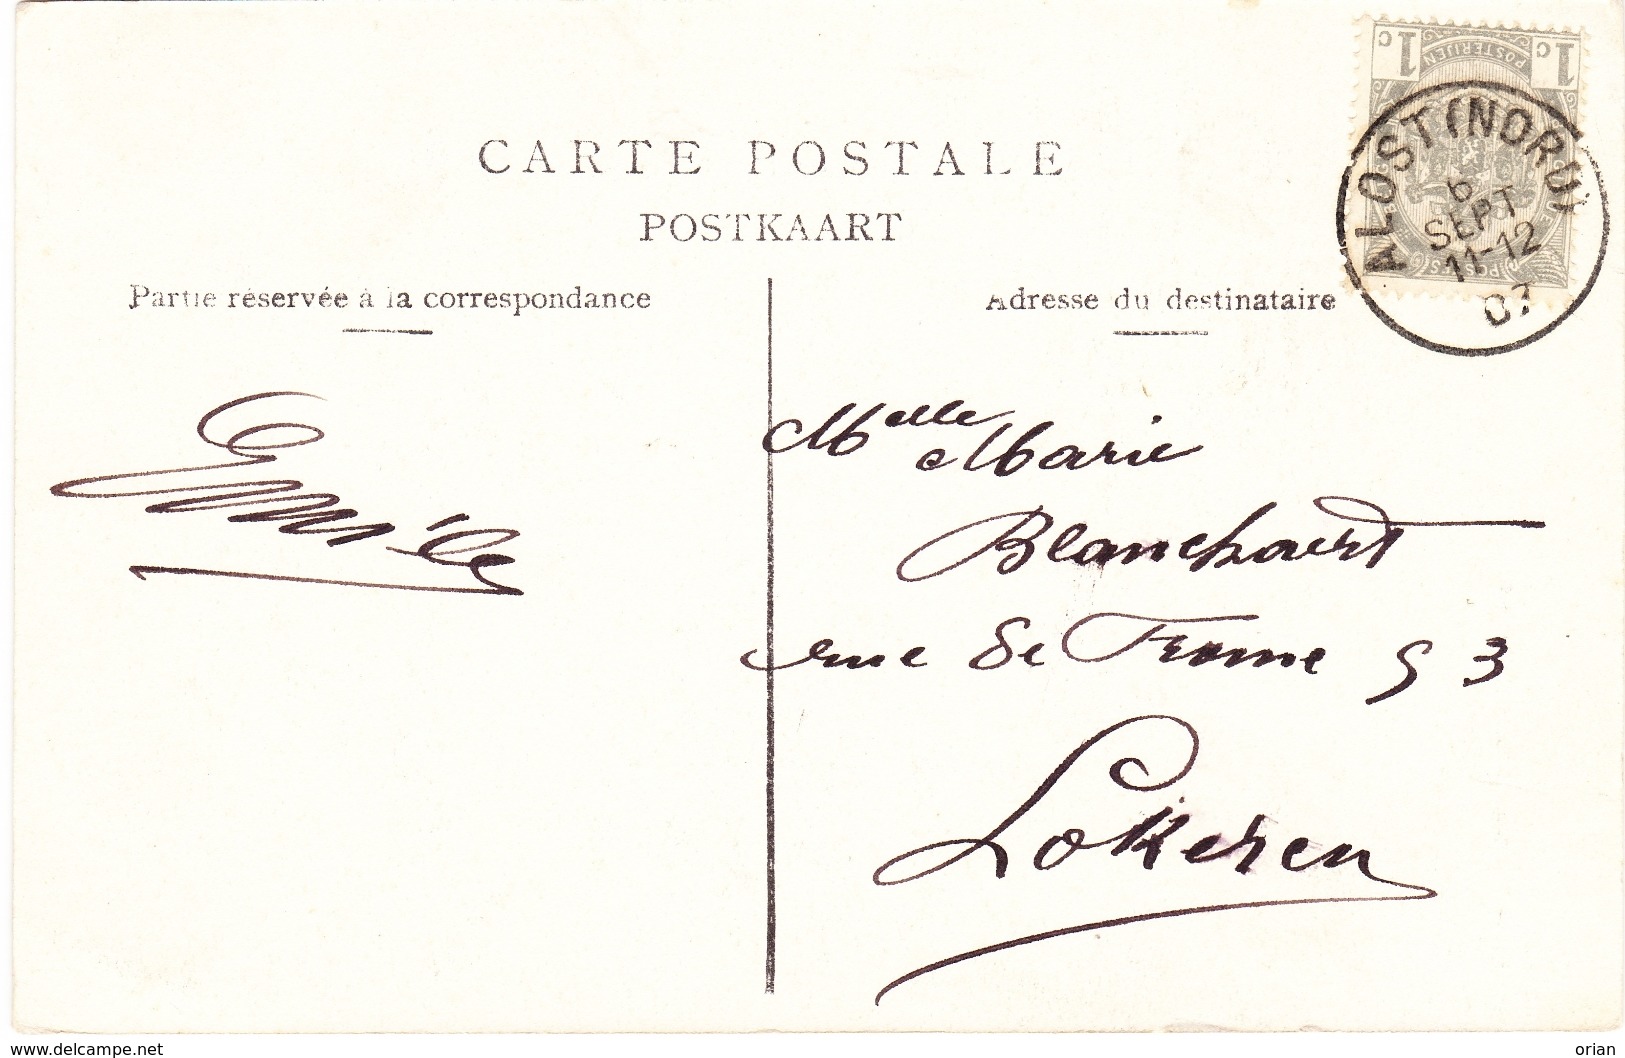 CARTE POSTALE
POSTKAART
Partie réservée à la correspondance
Adresse du destinataire
1c POSTERIJEN 1c
POSTES
ALOST (NORD)
6
SEPT
11-12
07
Emile
Melle Marie
Blanchaert
rue de Frome 53
Lokeren
www.delcampe.net
orian